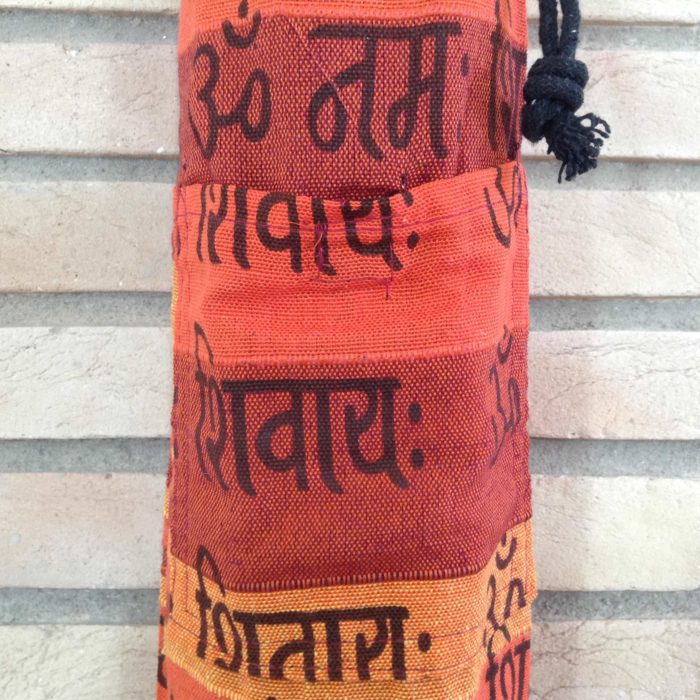 ॐ नमः
शिवायः ॐ
शिवायः ॐ
शिवायः ॐ